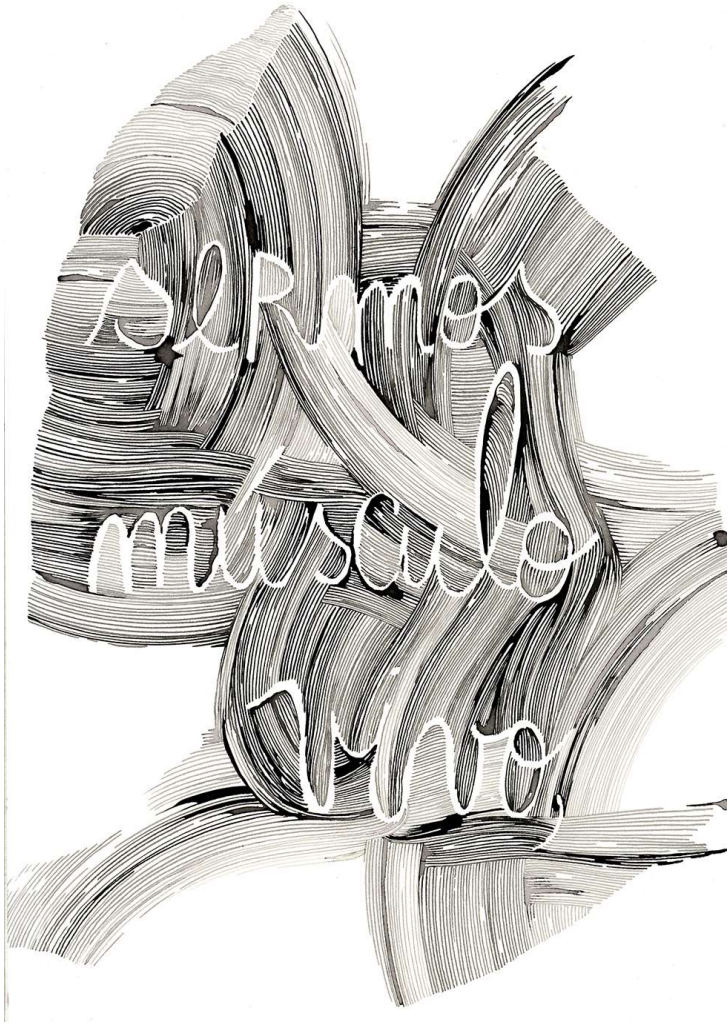 sermos
músculo
vivo,